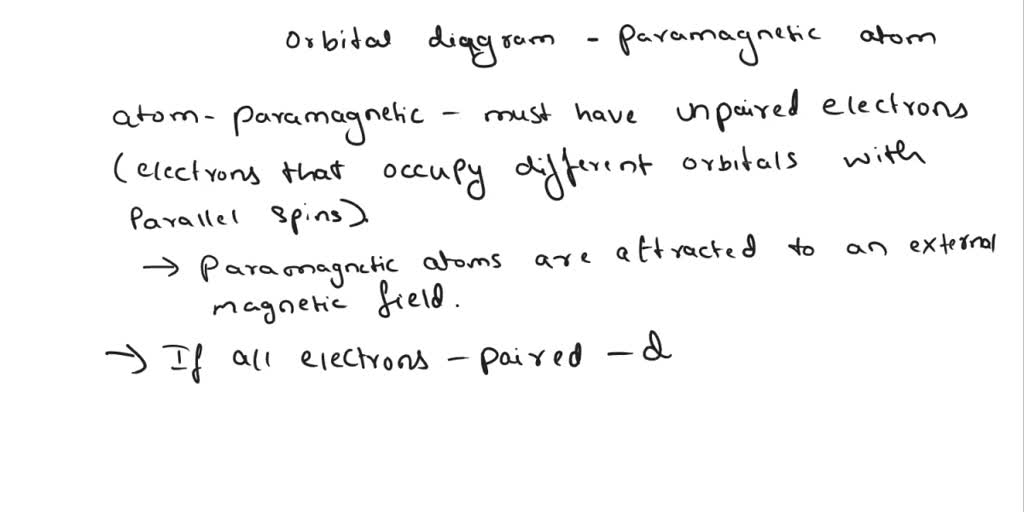 Orbital diagram - paramagnetic atom
atom - paramagnetic - must have unpaired electrons
(electrons that occupy different orbitals with
Parallel spins).
→ Paramagnetic atoms are attracted to an external
magnetic field.
→ If all electrons - paired - d